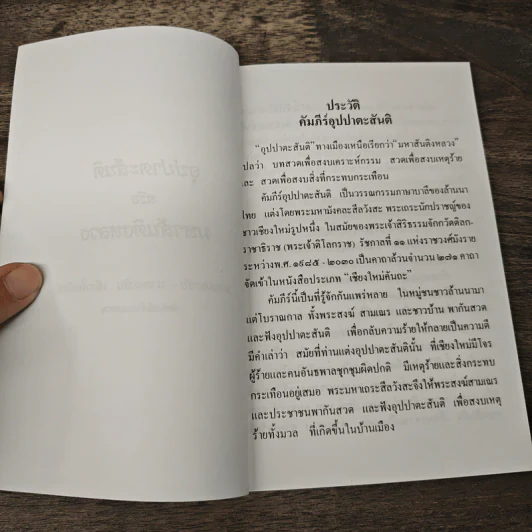 ประวัติ
คัมภีร์อุปปาตะสันติ
"อุปปาตะสันติ" ทางเมืองเหนือเรียกว่า "มหาสันติงหลวง"
ปลว่า บทสวดเพื่อสงบเคราะห์กรรม สวดเพื่อสงบเหตุร้าย
และ สวดเพื่อสงบสิ่งที่กระทบกระเทือน
คัมภีร์อุปปาตะสันติ เป็นวรรณกรรมภาษาบาลีของล้านนา
ไทย แต่งโดยพระมหามังคละสีลวังสะ พระเถระนักปราชญ์ของ
ชาวเชียงใหม่รูปหนึ่ง ในสมัยของพระเจ้าสิริธรรมจักกวัตติลก-
ราชาธิราช (พระเจ้าติโลกราช) รัชกาลที่ ๑๑ แห่งราชวงศ์มังราย
ระหว่างพ.ศ.๑๙๘๕ - ๒๐๓๐ เป็นคาถาล้วนจำนวน ๒๗๑ คาถา
จัดเข้าในหนังสือประเภท "เชียงใหม่คันถะ"
คัมภีร์นี้เป็นที่รู้จักกันแพร่หลาย ในหมู่ชนชาวล้านนามา
แต่โบราณกาล ทั้งพระสงฆ์ สามเณร และชาวบ้าน พากันสวด
และฟังอุปปาตะสันติ เพื่อกลับความร้ายให้กลายเป็นความดี
มีคำเล่าว่า สมัยที่ท่านแต่งอุปปาตะสันตินั้น ที่เชียงใหม่มีโจร
ผู้ร้ายและคนอันธพาลชุกชุมผิดปกติ มีเหตุร้ายและสิ่งกระทบ
กระเทือนอยู่เสมอ พระมหาเถระสีลวังสะจึงให้พระสงฆ์สามเณร
และประชาชนพากันสวด และฟังอุปปาตะสันติ เพื่อสงบเหตุ
ร้ายทั้งมวล ที่เกิดขึ้นในบ้านเมือง